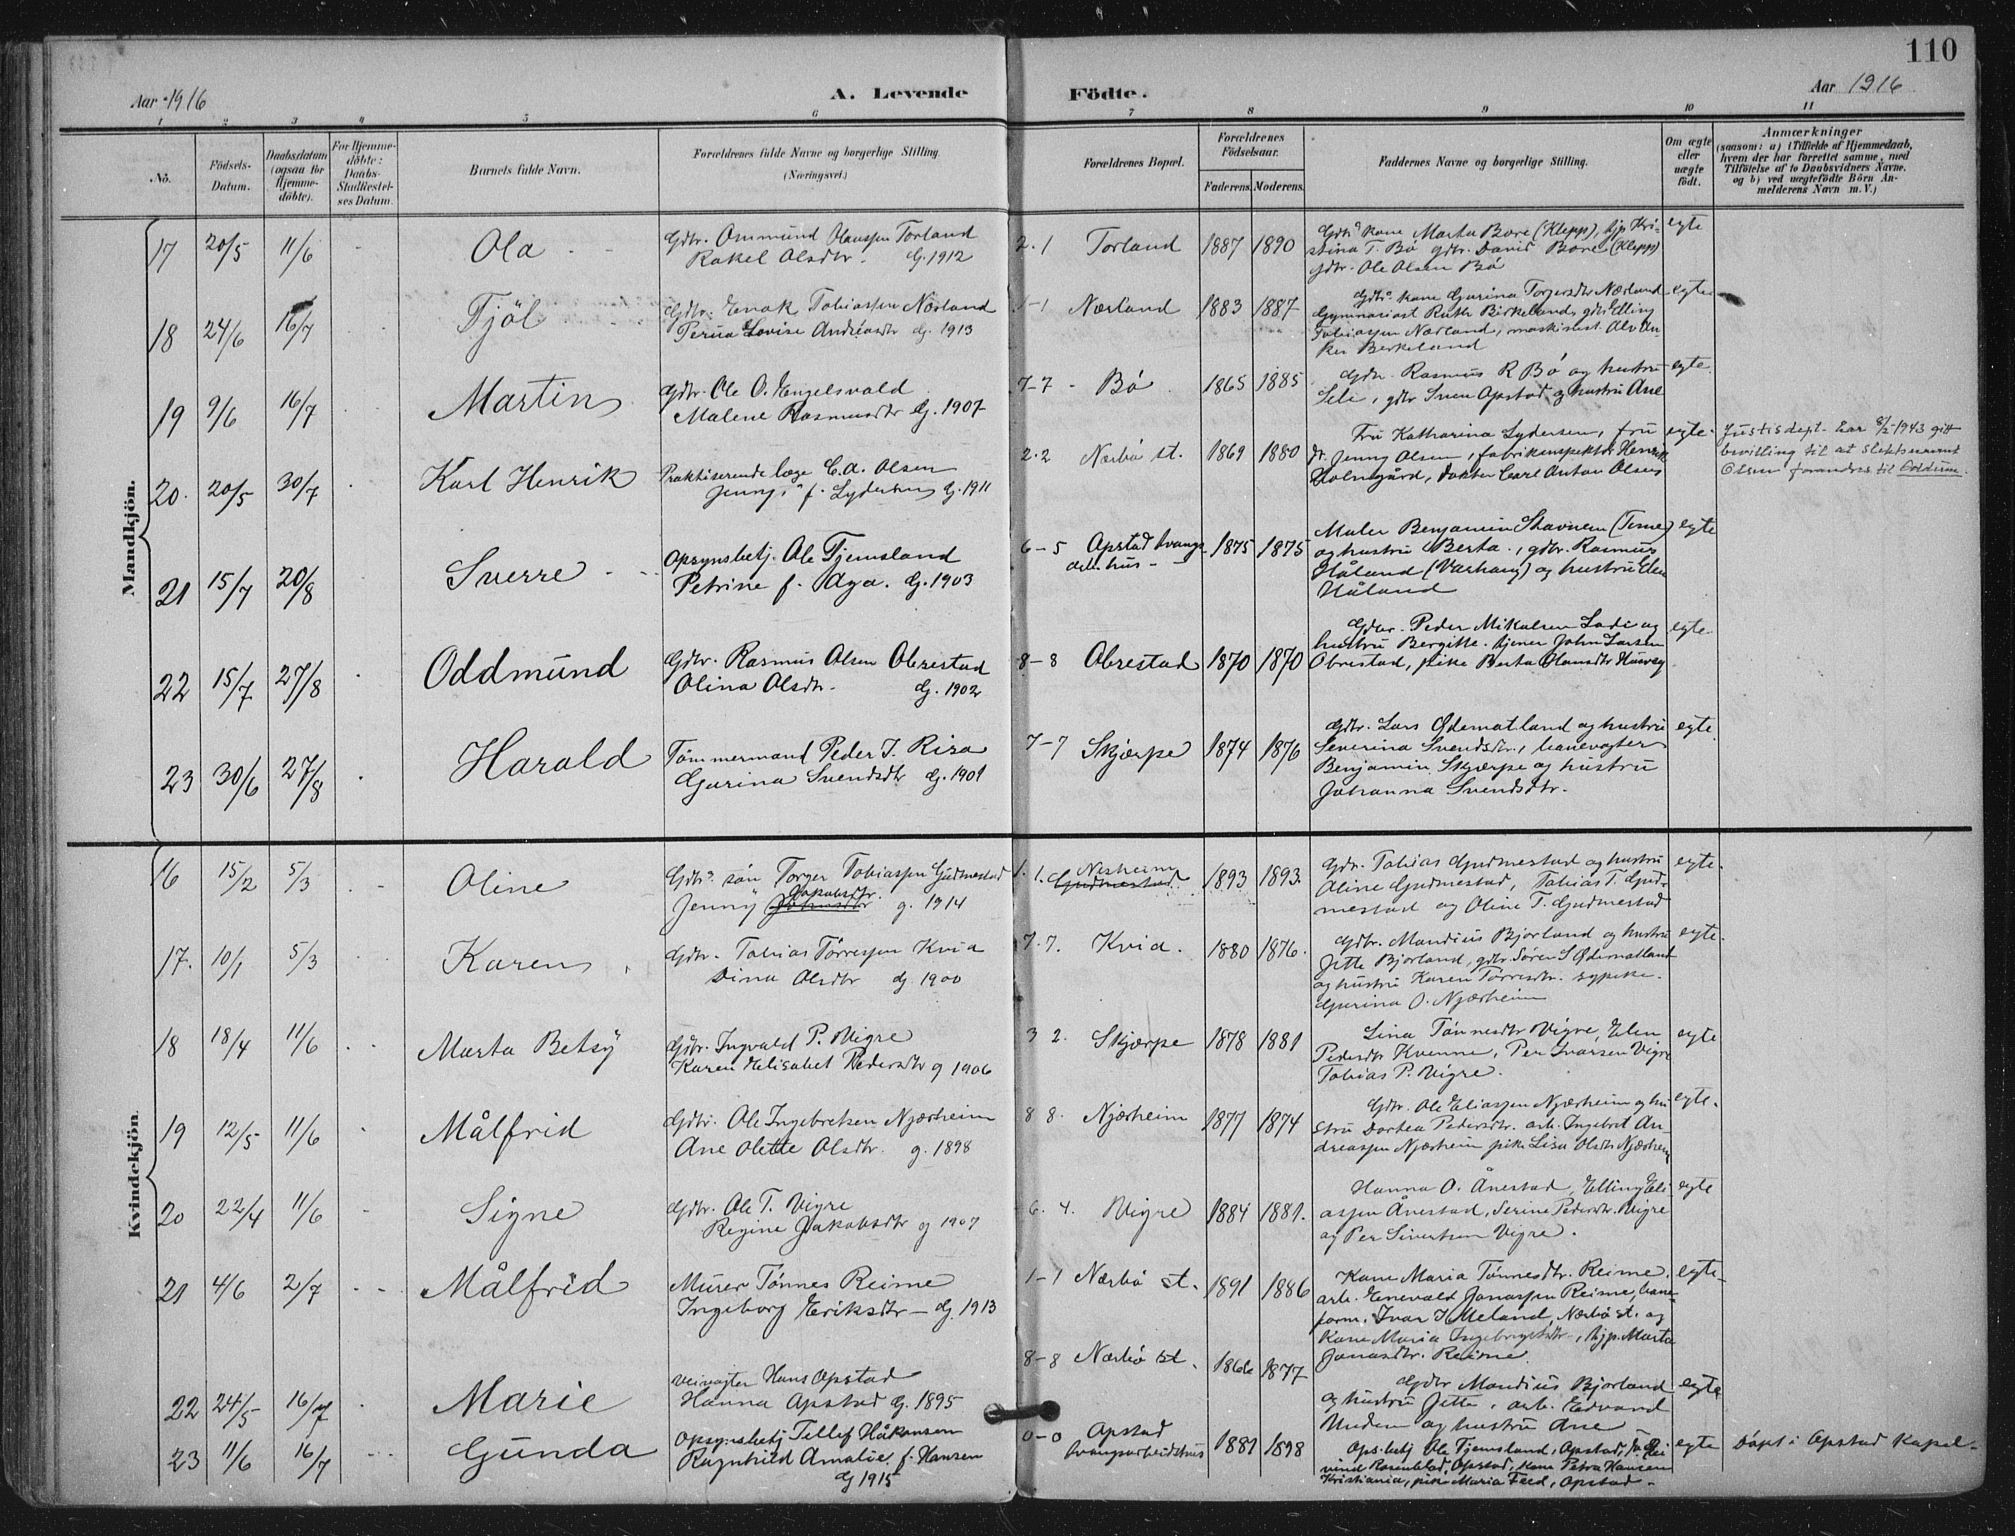 110
Aar 1916
A. Levende
Födte.
Aar 1916
1 2 3 4 5 6 7 8 9 10 11
No.
Födsels-Datum.
Daabsdatum (ogsaa for Hjemme-döbte).
For Hjemme-döbte: Daabs-Stadfæstel-ses Datum.
Barnets fulde Navn.
Forældrenes fulde Navne og borgerlige Stilling.
(Næringsvei.)
Forældrenes Bopæl.
Forældrenes Födselsaar.
Faderens. Moderens.
Faddernes Navne og borgerlige Stilling.
Om ægte eller uægte födt.
Anmærkninger
(saasom: a) i Tilfælde af Hjemmedaab,
hvem der har forrettet samme, med
Tilföielse af to Daabsvidners Navne,
og b) ved uægtefödte Börn An-
melderens Navn m. V.)
Mandkjön.
17 20/5 11/6 Ola
Gdbr. Ommund Olaussen Torland
Rakel Olsdtr. G. 1912
2.1 Torland 1887 1890
Gdbrs kone Marta Bore (Klepp), pige Kri-
stina T. Bö gdbr. David Bore (Klepp)
gdbr. Ole Olsen Bö
egte
18 24/6 16/7 Tjöl
Gdbr. Enok Tobiassen Nærland
Lovise Andreasdtr G. 1913
1-1 Nærland 1883 1887
Gdbrs kone Gurina Torgersdtr Nærland
Gymnasiast Ruth Birkeland, gdbr Elling
Tobiassen Nærland, maskinist
Birkeland
egte
19 9/6 16/7 Martin
Gdbr. Ole O. Engelsvold
Malene Rasmusdtr G. 1907
7-7 Bö 1865 1885
Gdbr. Rasmus R Bö og hustru
Sele, gdbr Sven Opstad og hustru Ane
egte.
20. 20/5 30/7 Karl Henrik
Praktiserende læge C. A. Olsen
Jenny f. Lydersen G. 1911
2.2 Nærbö st. 1869 1880
Fru Katharina Lydersen, fru
dr. Jenny Olsen, fabrikinspektör Henrik
Holmgård, doktor Carl Anton Olsen
egte.
Justisdept. har 8/2-1943 gitt
bevilling til at slektsnavnet
Olsen forandres til Oddum.
21 15/7 20/8 Sverre
Opsynsbetj. Ole Tjemsland
Petrine f. Aga. G. 1903
6-5 Opstad tvangs
arb. hus 1875 1875
Maler Benjamin Stavnem (Time)
og hustru Berta, gdbr. Rasmus
Håland (Varhaug) og hustru Elen
Håland
egte
22 15/7 27/8 Oddmund
Gdbr. Rasmus Olsen Obrestad
Olina Olsdtr. G. 1902
8-8 Obrestad 1870 1870
Gdbr. Peder Mikalsen Lode og
hustru Bergitte. tjener John Larsen
Obrestad, pike Berta Hansdtr
egte.
23 30/6 27/8 Harald
Tömmermand Peder J. Risa
Gurina Svendsdtr G. 1901
7-7 Skjærpe 1874 1876
Gdbr. Lars Ödemotland og hustru
Severina Svendsdtr., banevogter
Benjamin Skjærpe og hustru
Johanna Svendsdtr.
egte.
Kvindekjön.
16 15/2 5/3 Oline
Gdbrs sön Torger Tobiassen Gudmestad
Jakobsdtr.
Jenny g. 1914
1.1. Nesheim
Gudmestad 1893 1893
Gdbr. Tobias Gudmestad og hustru
Oline Gudmestad, Tobias T. Gud-
mestad og Oline T. Gudmestad
egte.
17. 10/1 5/3 Karen
Gdbr. Tobias Törressen Kvia
Dina Olsdtr G 1900
7.7. Kvia. 1880 1876.
Gdbr. Mandius Bjorland og hustru
Jette Bjorland, gdbr Sören S Ödemotland
og hustru Karen Torresdtr. sypike
Gurina O. Njærheim
egte.
18 18/4 11/6 Marta Betsy
Gdbr. Ingvald P. Vigre
Karen Elisabet Pedersdtr g 1906
3 2. Skjærpe 1878 1881
Lina Tönnesdtr Vigre, Elen
Pedersdtr Kvenne, Per Ivarsen Vigre
Tobias P. Vigre.
egte
19 12/5 11/6 Målfrid
Gdbr. Ole Ingebretsen Njærheim
Ane Olette Olsdtr. g. 1898
8 8. Njærheim 1877 1874
Gdbr. Ole Eliassen Njærheim og hu
stru Dortea Pedersdtr. arb. Ingebret An-
dreassen Njærheim pike Lisa Olsdtr Njærheim
egte.
20 22/4 11/6 Signe
Gdbr. Ole T. Vigre
Regine Jakobsdtr g 1907
6. 4. Vigre 1884 1881.
Hanna O. Ånestad, Elling Eli-
assen Ånestad, Serine Pedersdtr. Vigre
og Per Sivertsen Vigre.
egte
21 4/6 2/7 Målfrid
Murer Tönnes Reime
Ingeborg Eriksdtr - G. 1913
1-1 Nærbö st. 1891 1886
Kone Maria Tönnesdtr. Reime,
arb. Enevald Jonassen Reime, bane-
form. Ivar H Meland, Nærbö st. og
Kone Maria Ingebrigtsdtr, pige Marta
Jonasdtr. Reime.
egte
22 24/5 16/7 Marie
Veivogter Hans Opstad
Hanna Opstad G. 1895
8-8 Nærbö st. 1866 1877
Gdbr Mandius Bjorland
og hustru Jette, arb. Edvard
og hustru Ane
egte
23 11/6 16/7 Gunda
Opsynsbetj Tellef Håkonsen
Ragnhild Amalie f. Hansen
G 1915
0-0 Opstad
tvangsarbeidshus 1881 1898
Ops.betj Ole Tjemsland, Opstad,
Rosenblad, Opstad, kone Petra Hansen
Kristiania, pike Maria Feed, Opstad.
egte
Döpt i Opstad Kapel.